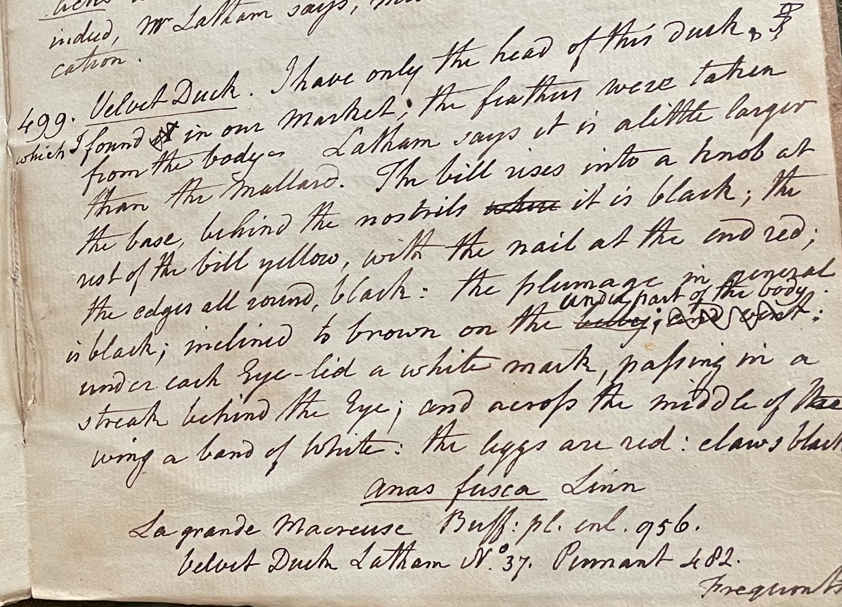 indeed, Mr Latham says,
cation.
499. Velvet Duck. I have only the head of this duck,
which I found in our Market; the feathers were taken
from the body= Latham says it is a little larger
than the Mallard. The bill rises into a knob at
the base, behind the nostrils where it is black; the
rest of the bill yellow, with the nail at the end red;
the edges all round, black: the plumage in general
is black; inclined to brown on the belly; and vent:
under part of the body.
under each Eye-lid a white mark, passing in a
streak behind the Eye; and across the middle of the
wing a band of White: the leggs are red: claws black
Anas fusca Linn
La grande Macreuse Buff: pl. enl. 956.
Velvet Duck Latham No. 37. Pennant 482.
Frequents